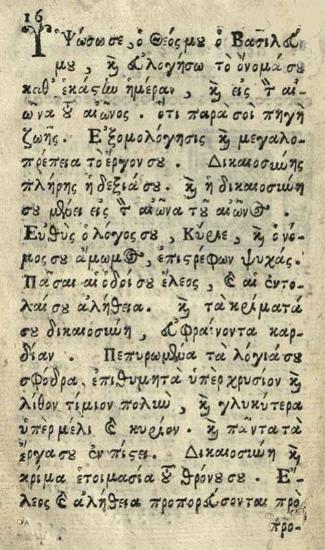 16
Ὑψώσω σε, ὁ Θεός μου ὁ Βασιλεύ
μου, καὶ εὐλογήσω τὸ ὄνομά σου
καθ' ἑκάστην ἡμέραν, καὶ εἰς τὸν αἰ-
ῶνα τοῦ αἰῶνος. ὅτι παρὰ σοὶ πηγὴ
ζωῆς. Ἐξομολόγησις καὶ μεγαλο-
πρέπεια τὸ ἔργον σου. Δικαιοσύνης
πλήρης ἡ δεξιά σου. καὶ ἡ δικαιοσύνη
σου μένει εἰς τὸν αἰῶνα τοῦ αἰῶνος.
Εὐθὺς ὁ λόγος σου, Κύριε, καὶ ὁ νό-
μος σου ἄμωμος, ἐπιστρέφων ψυχάς.
Πᾶσαι αἱ ὁδοί σου ἔλεος, καὶ αἱ ἐντο-
λαί σου ἀλήθεια. καὶ τὰ κρίματά
σου δικαιοσύνη, εὐφραίνοντα καρ-
δίαν. Πεπυρωμένα τὰ λόγιά σου
σφόδρα, ἐπιθυμητὰ ὑπὲρ χρυσίον καὶ
λίθον τίμιον πολὺν, καὶ γλυκύτερα
ὑπὲρ μέλι καὶ κηρίον. καὶ πάντα τὰ
ἔργα σου ἐν πίστει. Δικαιοσύνη καὶ
κρίμα ἑτοιμασία τοῦ θρόνου σου. Ἔ-
λεος καὶ ἀλήθεια προπορεύσονται πρὸ
προ-